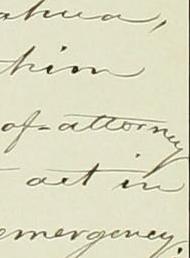 him
of-attorney
act in
emergency.